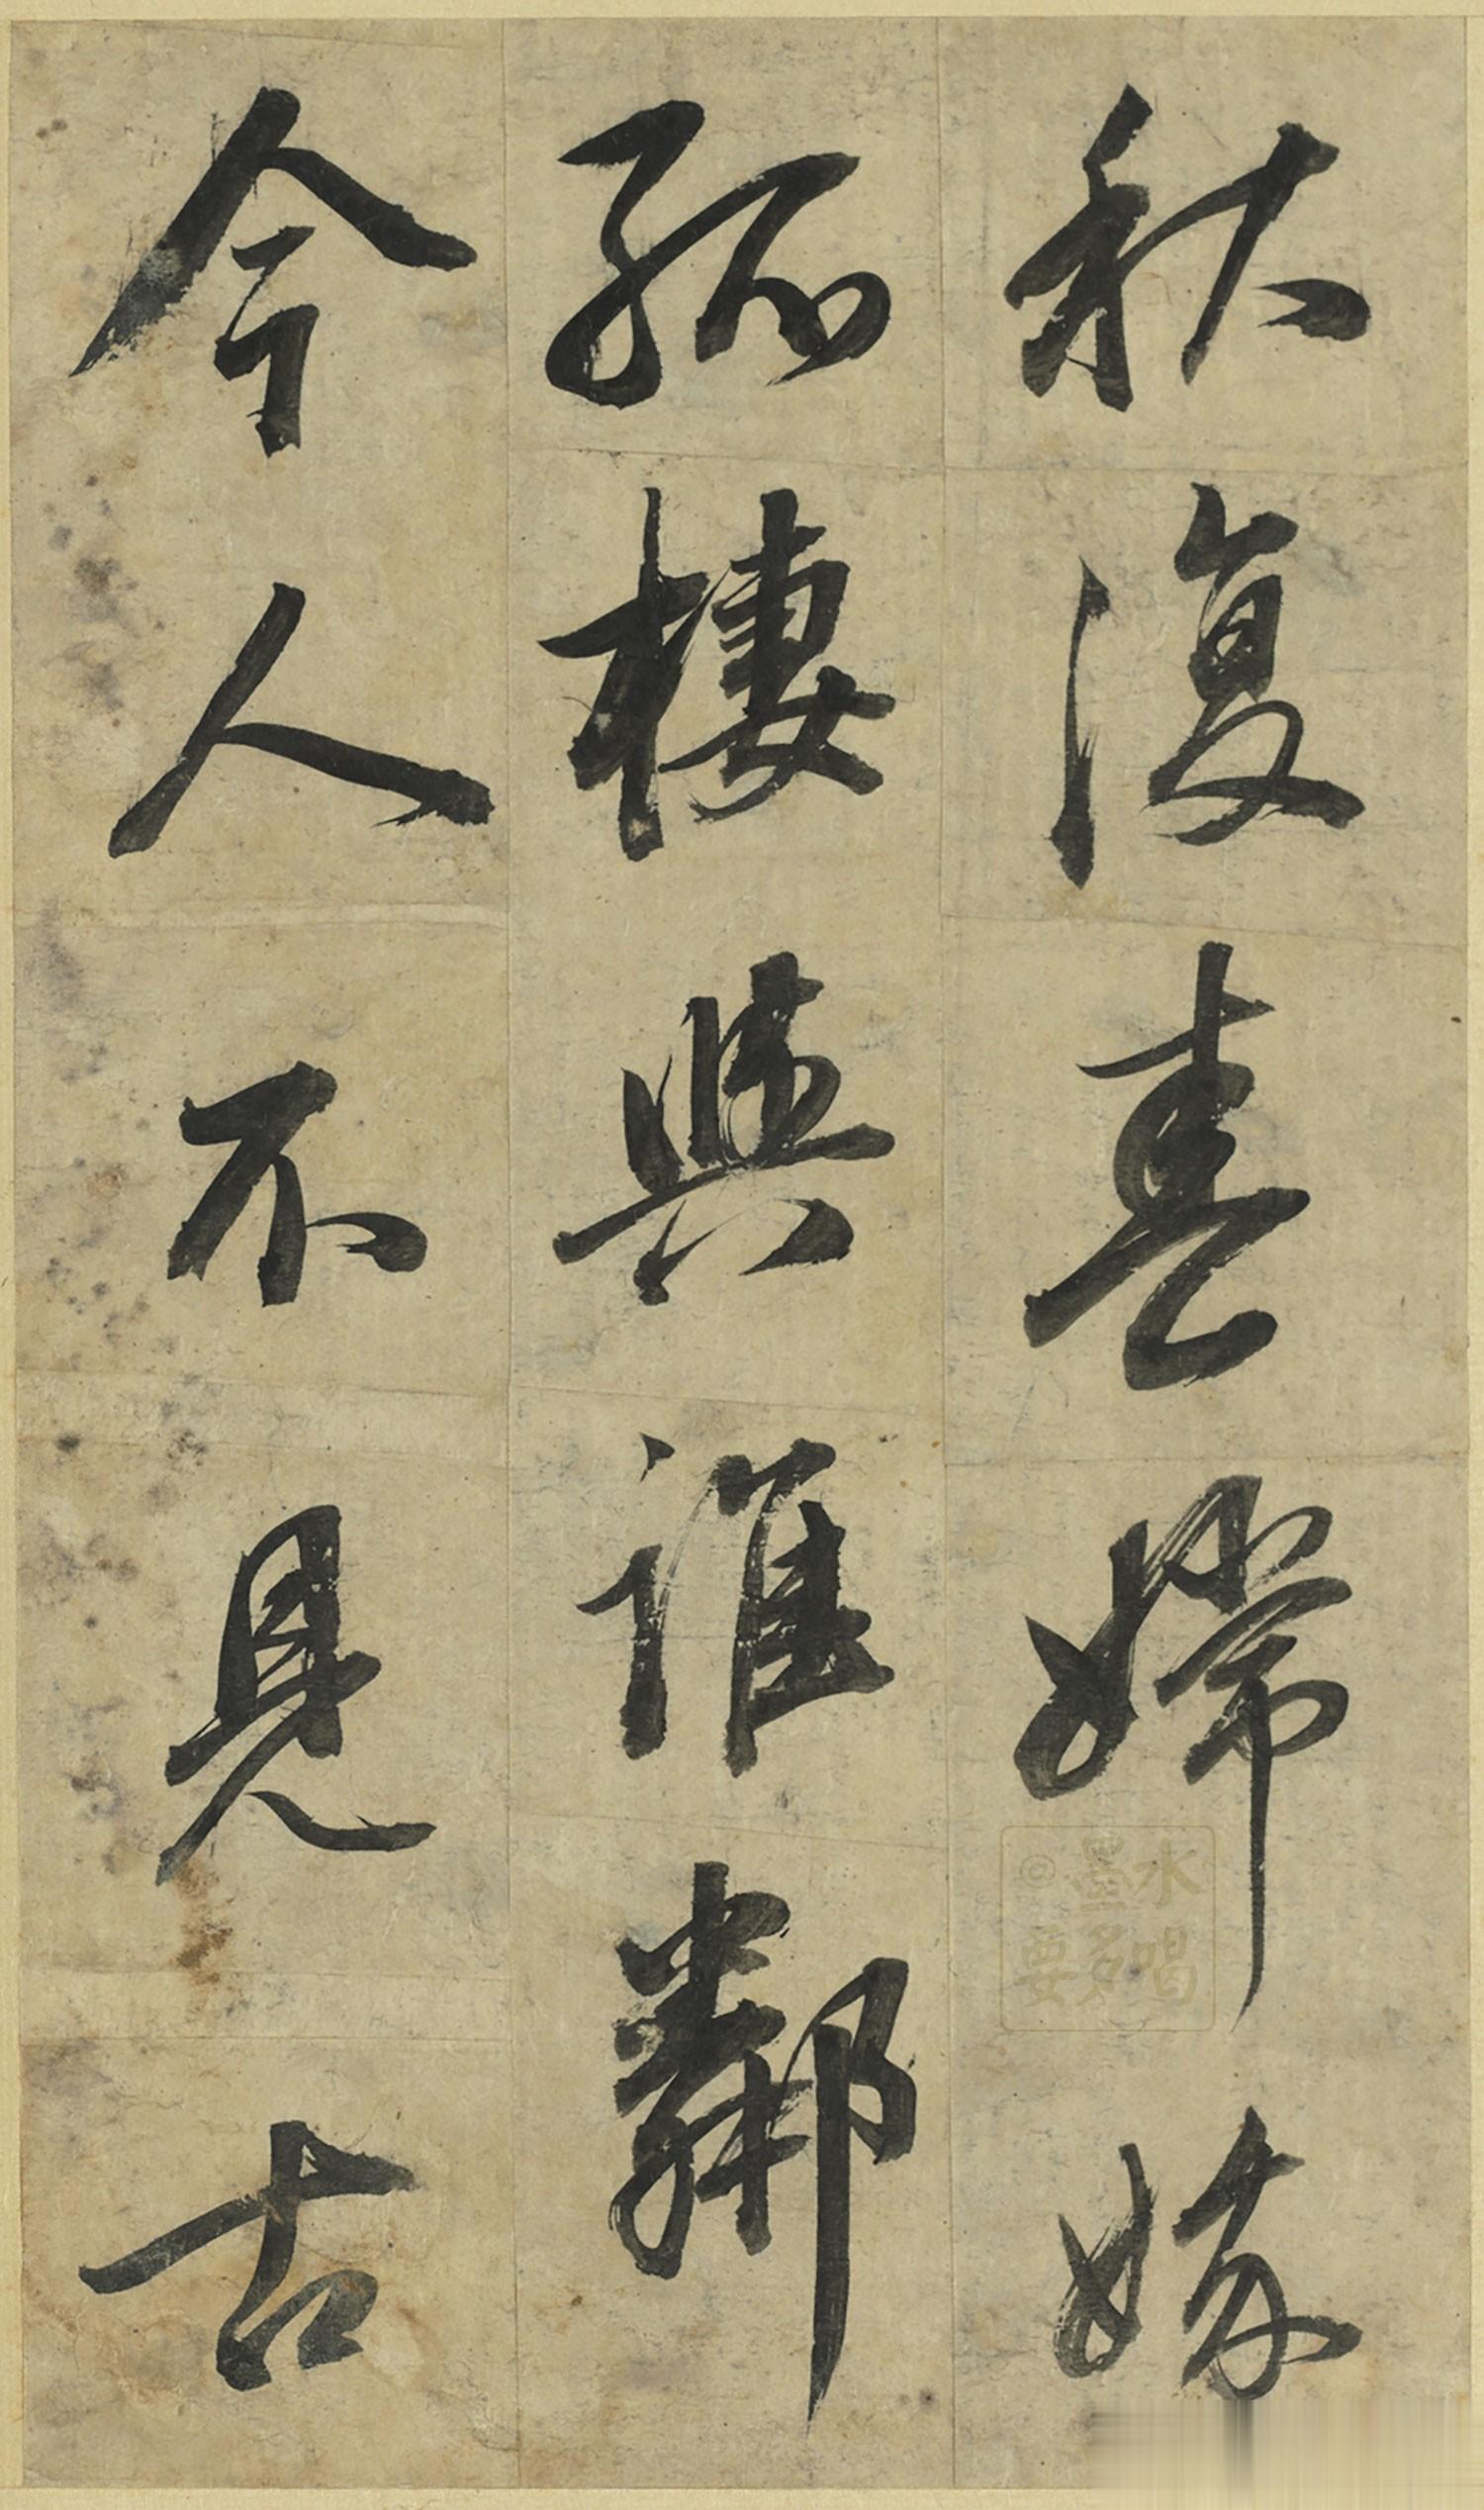 秋復春嫦娥
孤棲與誰鄰
今人不見古
水墨
唱多要
©